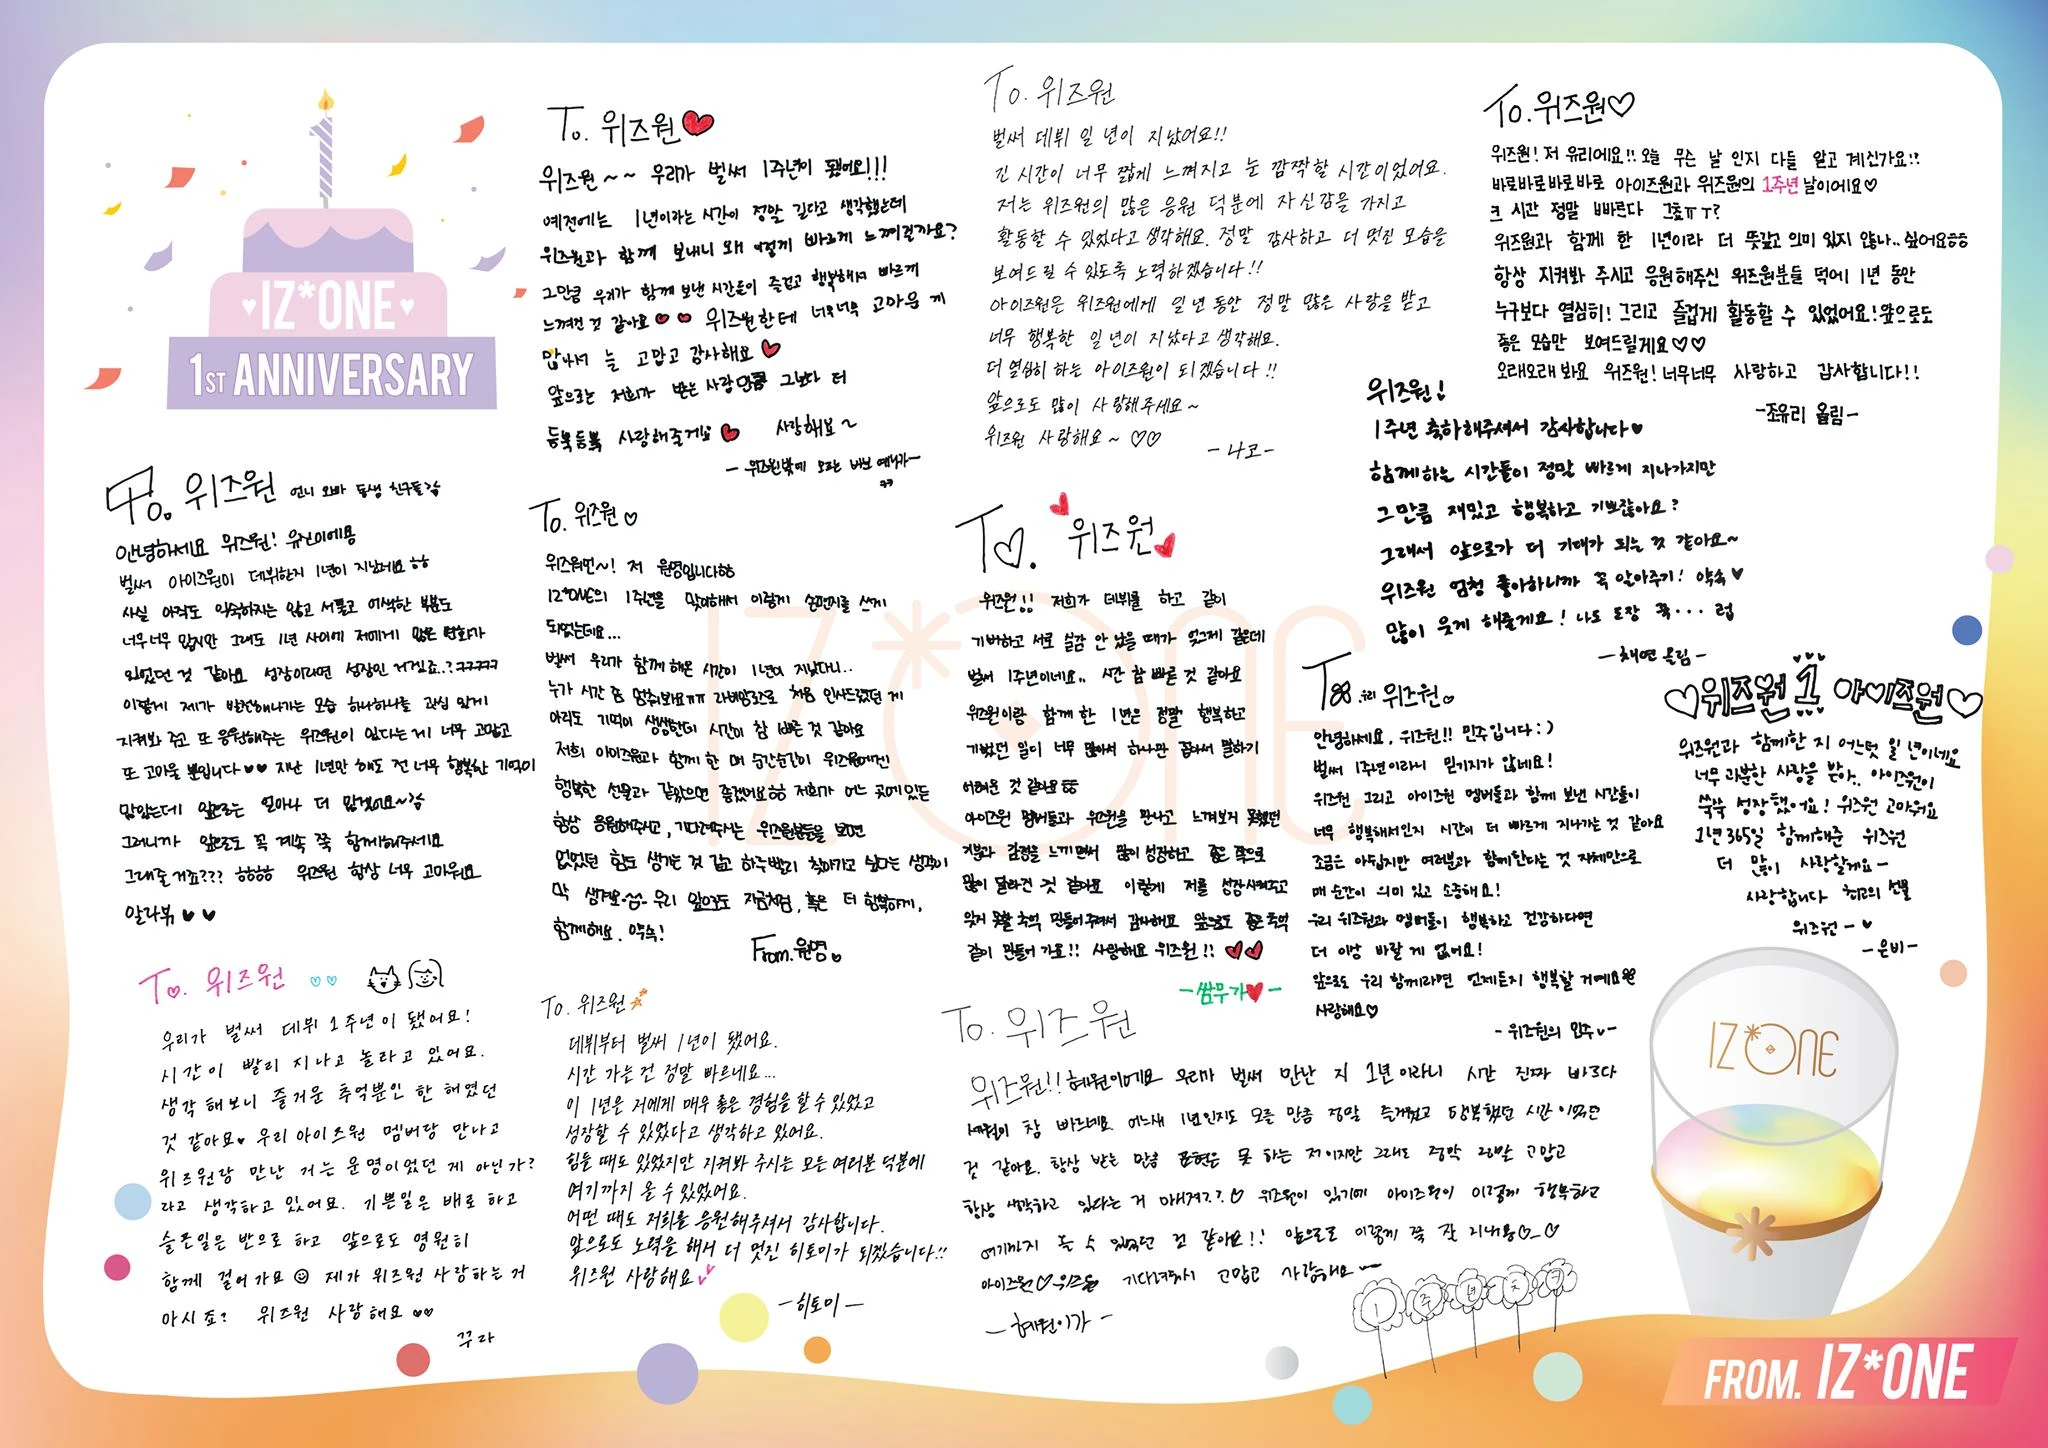 IZ*ONE
1ST ANNIVERSARY
To. 위즈원
위즈원~~ 우리가 벌써 1주년이 됐어요!!!
예전에는 1년이라는 시간이 정말 길다고 생각했는데
위즈원과 함께 보내니 왜 이렇게 빠르게 느껴질까요?
그만큼 우리가 함께 보낸 시간들이 즐겁고 행복해서 빠르게
느껴진 것 같아요 위즈원한테 너무너무 고마운 게
많아서 늘 고맙고 감사해요
앞으로는 저희가 받은 사랑만큼 그보다 더
듬뿍듬뿍 사랑해줄게요 사랑해요~
- 위즈원밖에 모르는 바보 예나가 -
ㅋㅋ
To. 위즈원
벌써 데뷔 일 년이 지났어요!!
긴 시간이 너무 짧게 느껴지고 눈 깜짝할 시간이었어요.
저는 위즈원의 많은 응원 덕분에 자신감을 가지고
활동할 수 있었다고 생각해요. 정말 감사하고 더 멋진 모습을
보여드릴 수 있도록 노력하겠습니다!!
아이즈원은 위즈원에게 일 년 동안 정말 많은 사랑을 받고
너무 행복한 일 년이 지났다고 생각해요.
더 열심히 하는 아이즈원이 되겠습니다!!
앞으로도 많이 사랑해주세요~
위즈원 사랑해요~ ♡♡
- 나코 -
To. 위즈원♡
위즈원! 저 유리에요!! 오늘 무슨 날 인지 다들 알고 계신가요!?
바로바로바로바로 아이즈원과 위즈원의 1주년 날이에요♡
크 시간 정말 빠르다 그쵸ㅠㅜ?
위즈원과 함께 한 1년이라 더 뜻깊고 의미 있지 않나.. 싶어요ㅎㅎ
항상 지켜봐 주시고 응원해주신 위즈원분들 덕에 1년 동안
누구보다 열심히! 그리고 즐겁게 활동할 수 있었어요! 앞으로도
좋은 모습만 보여드릴게요♡♡
오래오래 봐요 위즈원! 너무너무 사랑하고 감사합니다!!
- 조유리 올림 -
위즈원!
1주년 축하해주셔서 감사합니다♥
함께하는 시간들이 정말 빠르게 지나가지만
그만큼 재밌고 행복하고 기쁘잖아요?
그래서 앞으로가 더 기대가 되는 것 같아요~
위즈원 엄청 좋아하니까 꼭 알아주기! 약속♥
많이 웃게 해줄게요! 나도 도장 쾅... 럽
- 채연 올림 -
To. 위즈원 언니 오빠 동생 친구들
안녕하세요 위즈원! 유진이에용
벌써 아이즈원이 데뷔한지 1년이 지났네요 ㅎㅎ
사실 아직도 익숙하지는 않고 서툴고 어색한 부분도
너무너무 많지만 그래도 1년 사이에 저에게 많은 변화가
있었던 것 같아요 성장이라면 성장인 거겠죠..? ㅋㅋㅋㅋㅋ
이렇게 제가 발전해나가는 모습 하나하나를 관심 있게
지켜봐 주고 또 응원해주는 위즈원이 있다는 게 너무 고맙고
또 고마울 뿐입니다♥♥ 지난 1년만 해도 전 너무 행복한 기억이
많았는데 앞으로는 얼마나 더 많겠어요~
그러니까 앞으로도 꼭 계속 쭉 함께해주세요
그래줄 거죠??? ㅎㅎㅎㅎ 위즈원 항상 너무 고마워요
알라뷰 ♥♥
To. 위즈원♡
위즈워언~! 저 원영입니다ㅎㅎ
IZ*ONE의 1주년을 맞이해서 이렇게 손편지를 쓰게
되었는데요...
벌써 우리가 함께 해온 시간이 1년이 지났다니..
누가 시간 좀 멈춰봐요ㅠㅠ 라비앙로즈로 처음 인사드렸던 게
아직도 기억이 생생한데 시간이 참 빠른 것 같아요
저희 아이즈원과 함께 한 매 순간순간이 위즈원에겐
행복한 선물과 같았으면 좋겠어요ㅎㅎ 저희가 어느 곳에 있든
항상 응원해주시고, 기다려주시는 위즈원분들을 보면
없었던 힘도 생기는 것 같고 하루빨리 찾아가고 싶다는 생각이
막 생겨요 우리 앞으로도 지금처럼, 혹은 더 행복하게,
함께해요. 약속!
From. 원영
To. 위즈원
위즈원!! 저희가 데뷔를 하고 같이
기뻐하고 서로 실감 안 났을 때가 엊그제 같은데
벌써 1주년이네요.. 시간 참 빠른 것 같아요
위즈원이랑 함께 한 1년은 정말 행복하고
기뻤던 일이 너무 많아서 하나만 꼽아서 말하기
어려운 것 같아요ㅎㅎ
아이즈원 멤버들과 위즈원을 만나고 느껴보지 못했던
기분과 감정을 느끼면서 많이 성장하고 좋은 쪽으로
많이 달라진 것 같아요 이렇게 저를 성장시켜주고
잊지 못할 추억 만들어주셔서 감사해요 앞으로도 좋은 추억
같이 만들어 가요!! 사랑해요 위즈원!!
- 쌈무가 -
To. 우리 위즈원
안녕하세요, 위즈원!! 민주입니다:)
벌써 1주년이라니 믿기지가 않네요!
위즈원 그리고 아이즈원 멤버들과 함께 보낸 시간들이
너무 행복해서인지 시간이 더 빠르게 지나가는 것 같아요
조금은 아쉽지만 여러분과 함께한다는 것 자체만으로
매 순간이 의미 있고 소중해요!
우리 위즈원과 멤버들이 행복하고 건강하다면
더 이상 바랄 게 없어요!
앞으로도 우리 함께라면 언제든지 행복할 거예요
사랑해요♡
- 위즈원의 민주 -
♡위즈원 1 아이즈원♡
위즈원과 함께한 지 어느덧 일 년이네요
너무 과분한 사랑을 받아.. 아이즈원이
쑥쑥 성장했어요! 위즈원 고마워요
1년 365일 함께해준 위즈원
더 많이 사랑할게요-
사랑합니다 최고의 선물
위즈원-♥
- 은비 -
To. 위즈원 ♡♡
우리가 벌써 데뷔 1주년이 됐어요!
시간이 빨리 지나고 놀라고 있어요.
생각해보니 즐거운 추억뿐인 한 해였던
것 같아요♥ 우리 아이즈원 멤버랑 만나고
위즈원랑 만난 거는 운명이었던 게 아닌가?
라고 생각하고 있어요. 기쁜일은 배로 하고
슬픈일은 반으로 하고 앞으로도 영원히
함께 걸어가요 제가 위즈원 사랑하는 거
아시죠? 위즈원 사랑해요 ♡♡
꾸라
To. 위즈원
데뷔부터 벌써 1년이 됐어요.
시간 가는 건 정말 빠르네요...
이 1년은 저에게 매우 좋은 경험을 할 수 있었고
성장할 수 있었다고 생각하고 있어요.
힘들 때도 있었지만 지켜봐 주시는 모든 여러분 덕분에
여기까지 올 수 있었어요.
어떤 때도 저희를 응원해주셔서 감사합니다.
앞으로도 노력을 해서 더 멋진 히토미가 되겠습니다!!
위즈원 사랑해요
- 히토미 -
To. 위즈원
위즈원!! 혜원이에요 우리가 벌써 만난 지 1년이라니 시간 진짜 빠르다
세월이 참 빠르네요 어느새 1년인지도 모를 만큼 정말 즐거웠고 행복했던 시간이었던
것 같아요. 항상 받는 만큼 표현은 못 하는 저이지만 그래도 정말 정말 고맙고
항상 생각하고 있다는 거 아시죠?? ♡ 위즈원이 있기에 아이즈원이 이렇게 행복하고
여기까지 올 수 있었던 것 같아요!! 앞으로도 이렇게 쭉 잘 지내용♡_♡
아이즈원♡위즈원 기다려줘서 고맙고 사랑해요
- 혜원이가 -
1주년축하
IZ*ONE
FROM. IZ*ONE